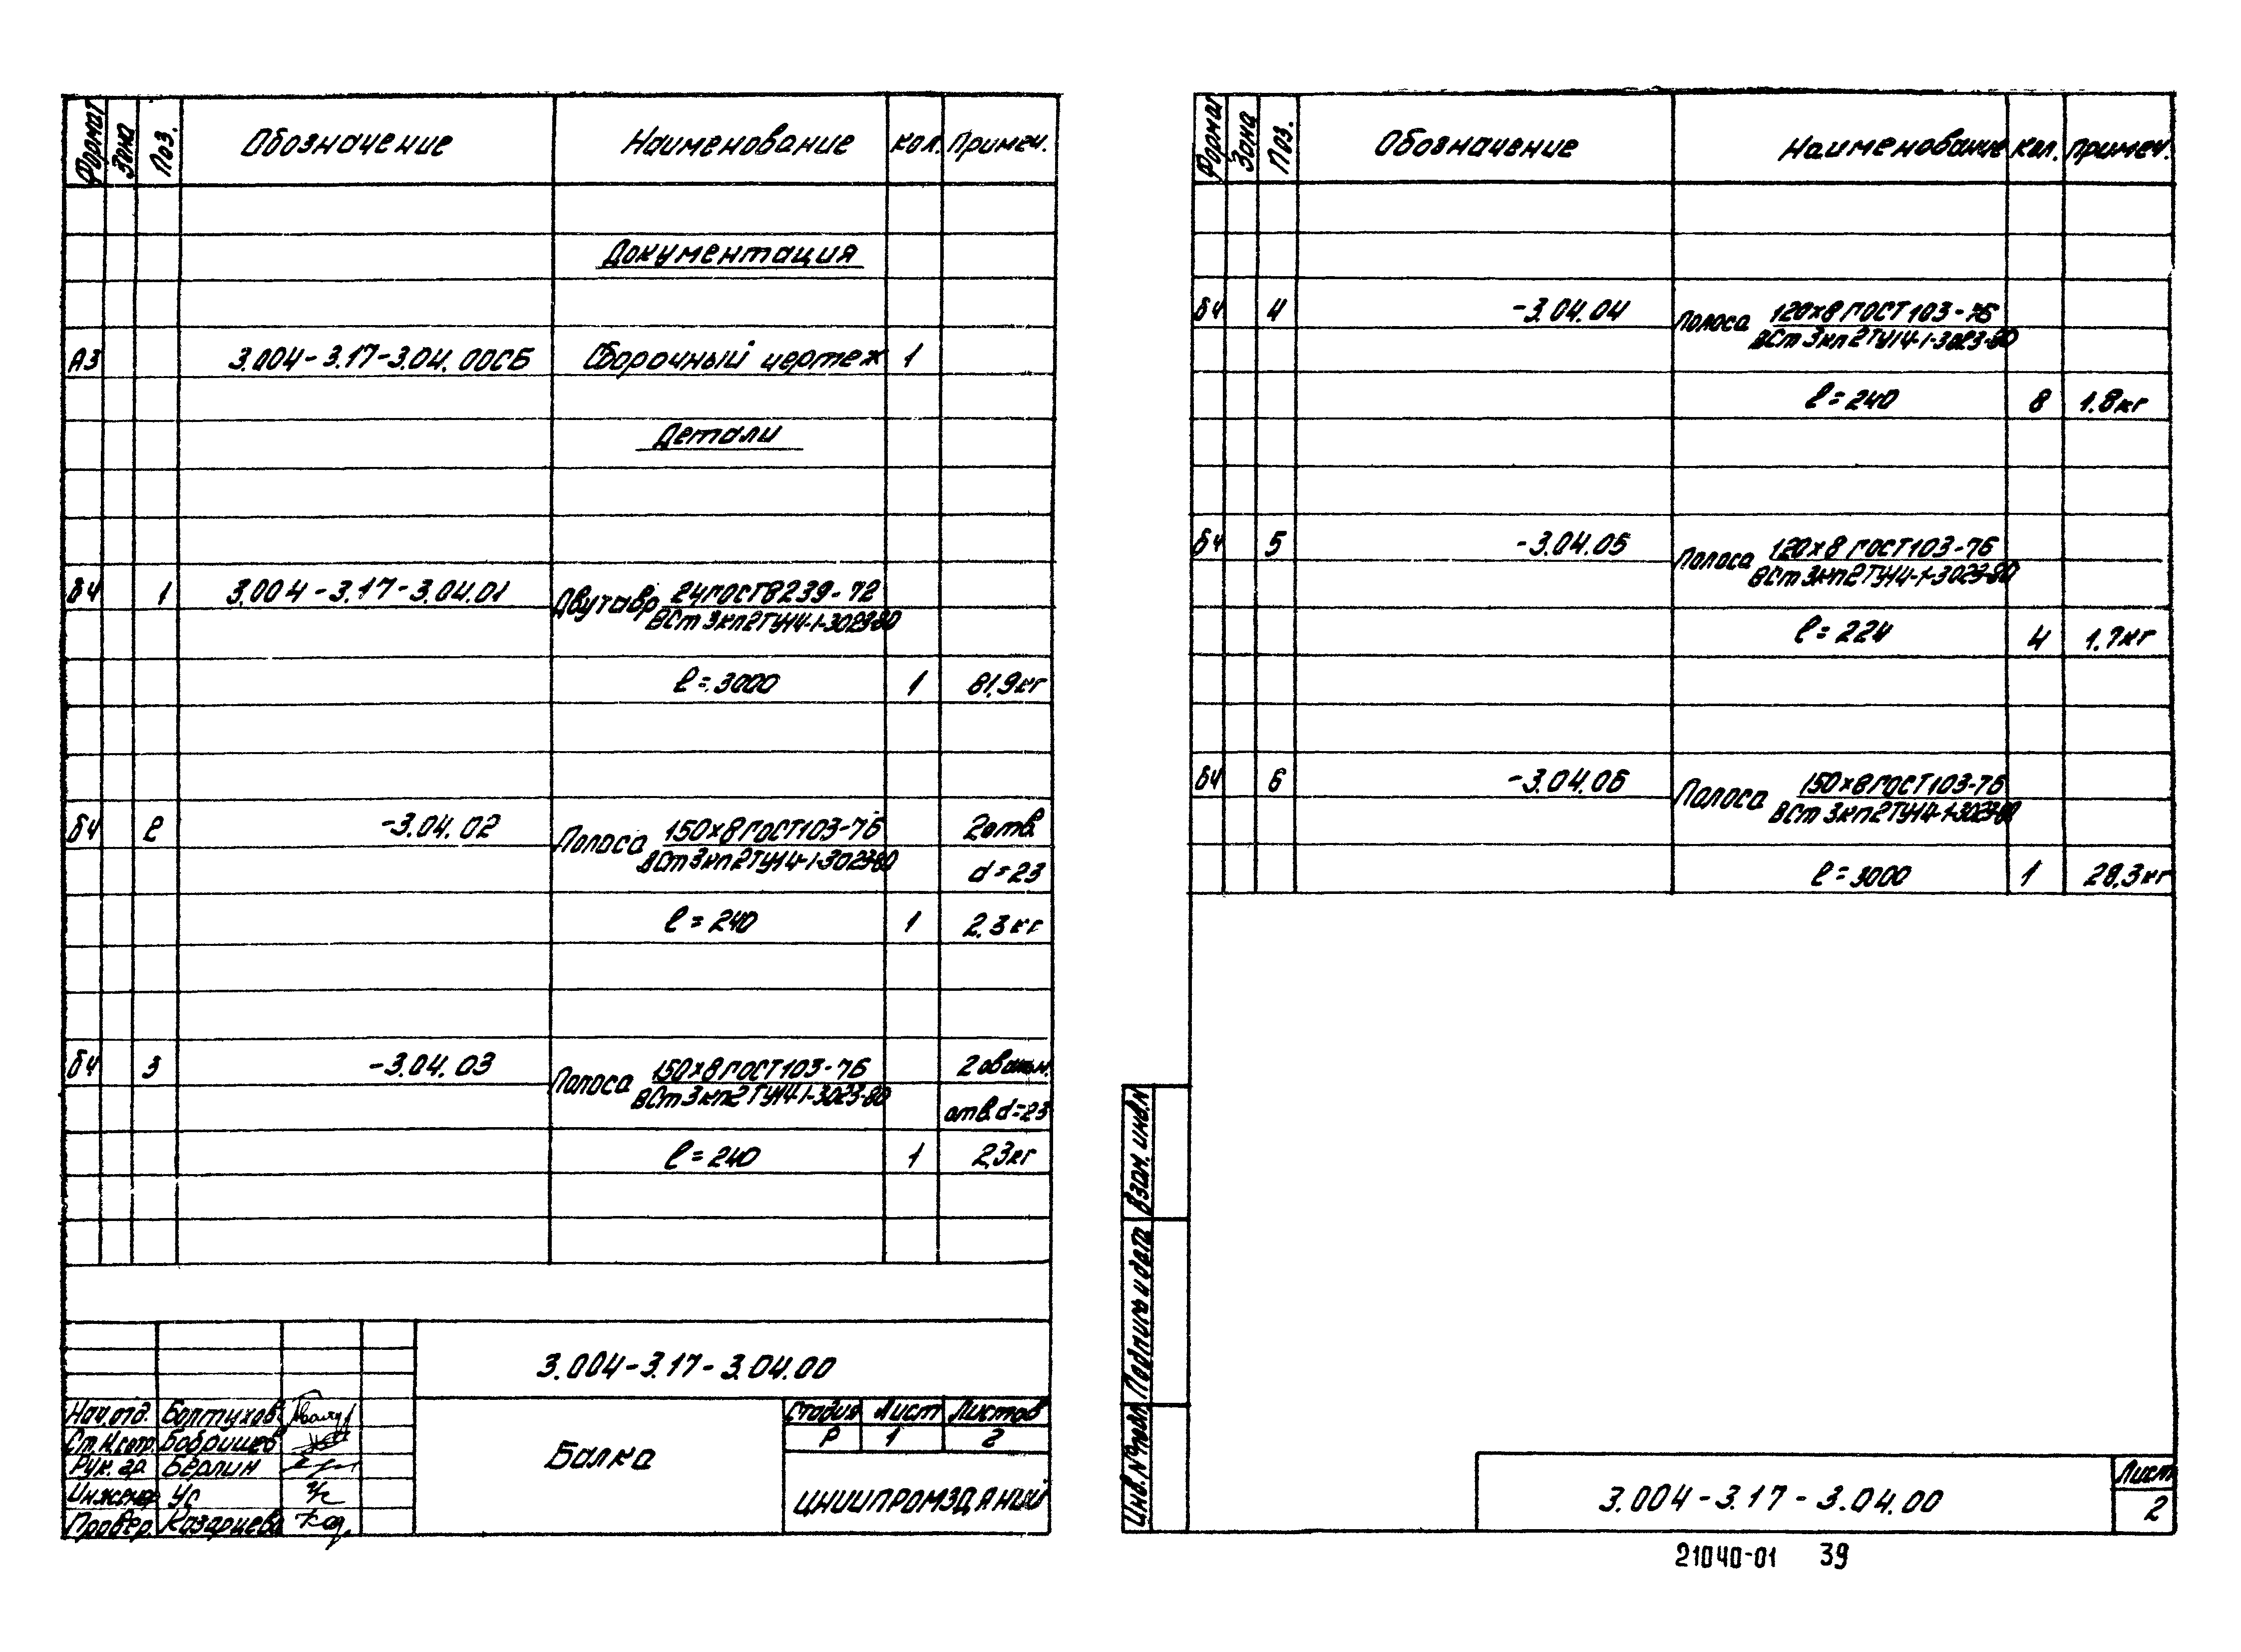 Формат Зона Поз. Обозначение Наименование Кол. Примеч.
Документация
А3 3.004-3.17-3.04.00СБ Сборочный чертеж 1
Детали
б4 1 3.004-3.17-3.04.01 Двутавр 24 ГОСТ 8239-72
ВСт3кп2 ТУ14-1-3023-80
ℓ=3000 1 81,9кг
б4 2 -3.04.02 Полоса 150×8 ГОСТ 103-76 2 отв.
ВСт3кп2 ТУ14-1-3023-80 d=23
ℓ=240 1 2,3кг
б4 3 -3.04.03 Полоса 150×8 ГОСТ 103-76 2 овальн.
ВСт3кп2 ТУ14-1-3023-80 отв. d=23
ℓ=240 1 2,3кг
3.004-3.17-3.04.00
Нач.отд. Болтухов
Ст.н.сотр. Бобришев
Рук. гр. Берлин
Инженер Ус
Провер. Казарцева
Балка
Стадия Лист Листов
Р 1 2
ЦНИИПРОМЗДАНИЙ
Формат Зона Поз. Обозначение Наименование Кол. Примеч.
б4 4 -3.04.04 Полоса 120×8 ГОСТ 103-76
ВСт3кп2 ТУ14-1-3023-80
ℓ=240 8 1,8кг
б4 5 -3.04.05 Полоса 120×8 ГОСТ 103-76
ВСт3кп2 ТУ14-1-3023-80
ℓ=224 4 1,7кг
б4 6 -3.04.06 Полоса 150×8 ГОСТ 103-76
ВСт3кп2 ТУ14-1-3023-80
ℓ=3000 1 28,3кг
Взам. инв.N
Подпись и дата
Инв.№подл
3.004-3.17-3.04.00
Лист
2
21040-01 39